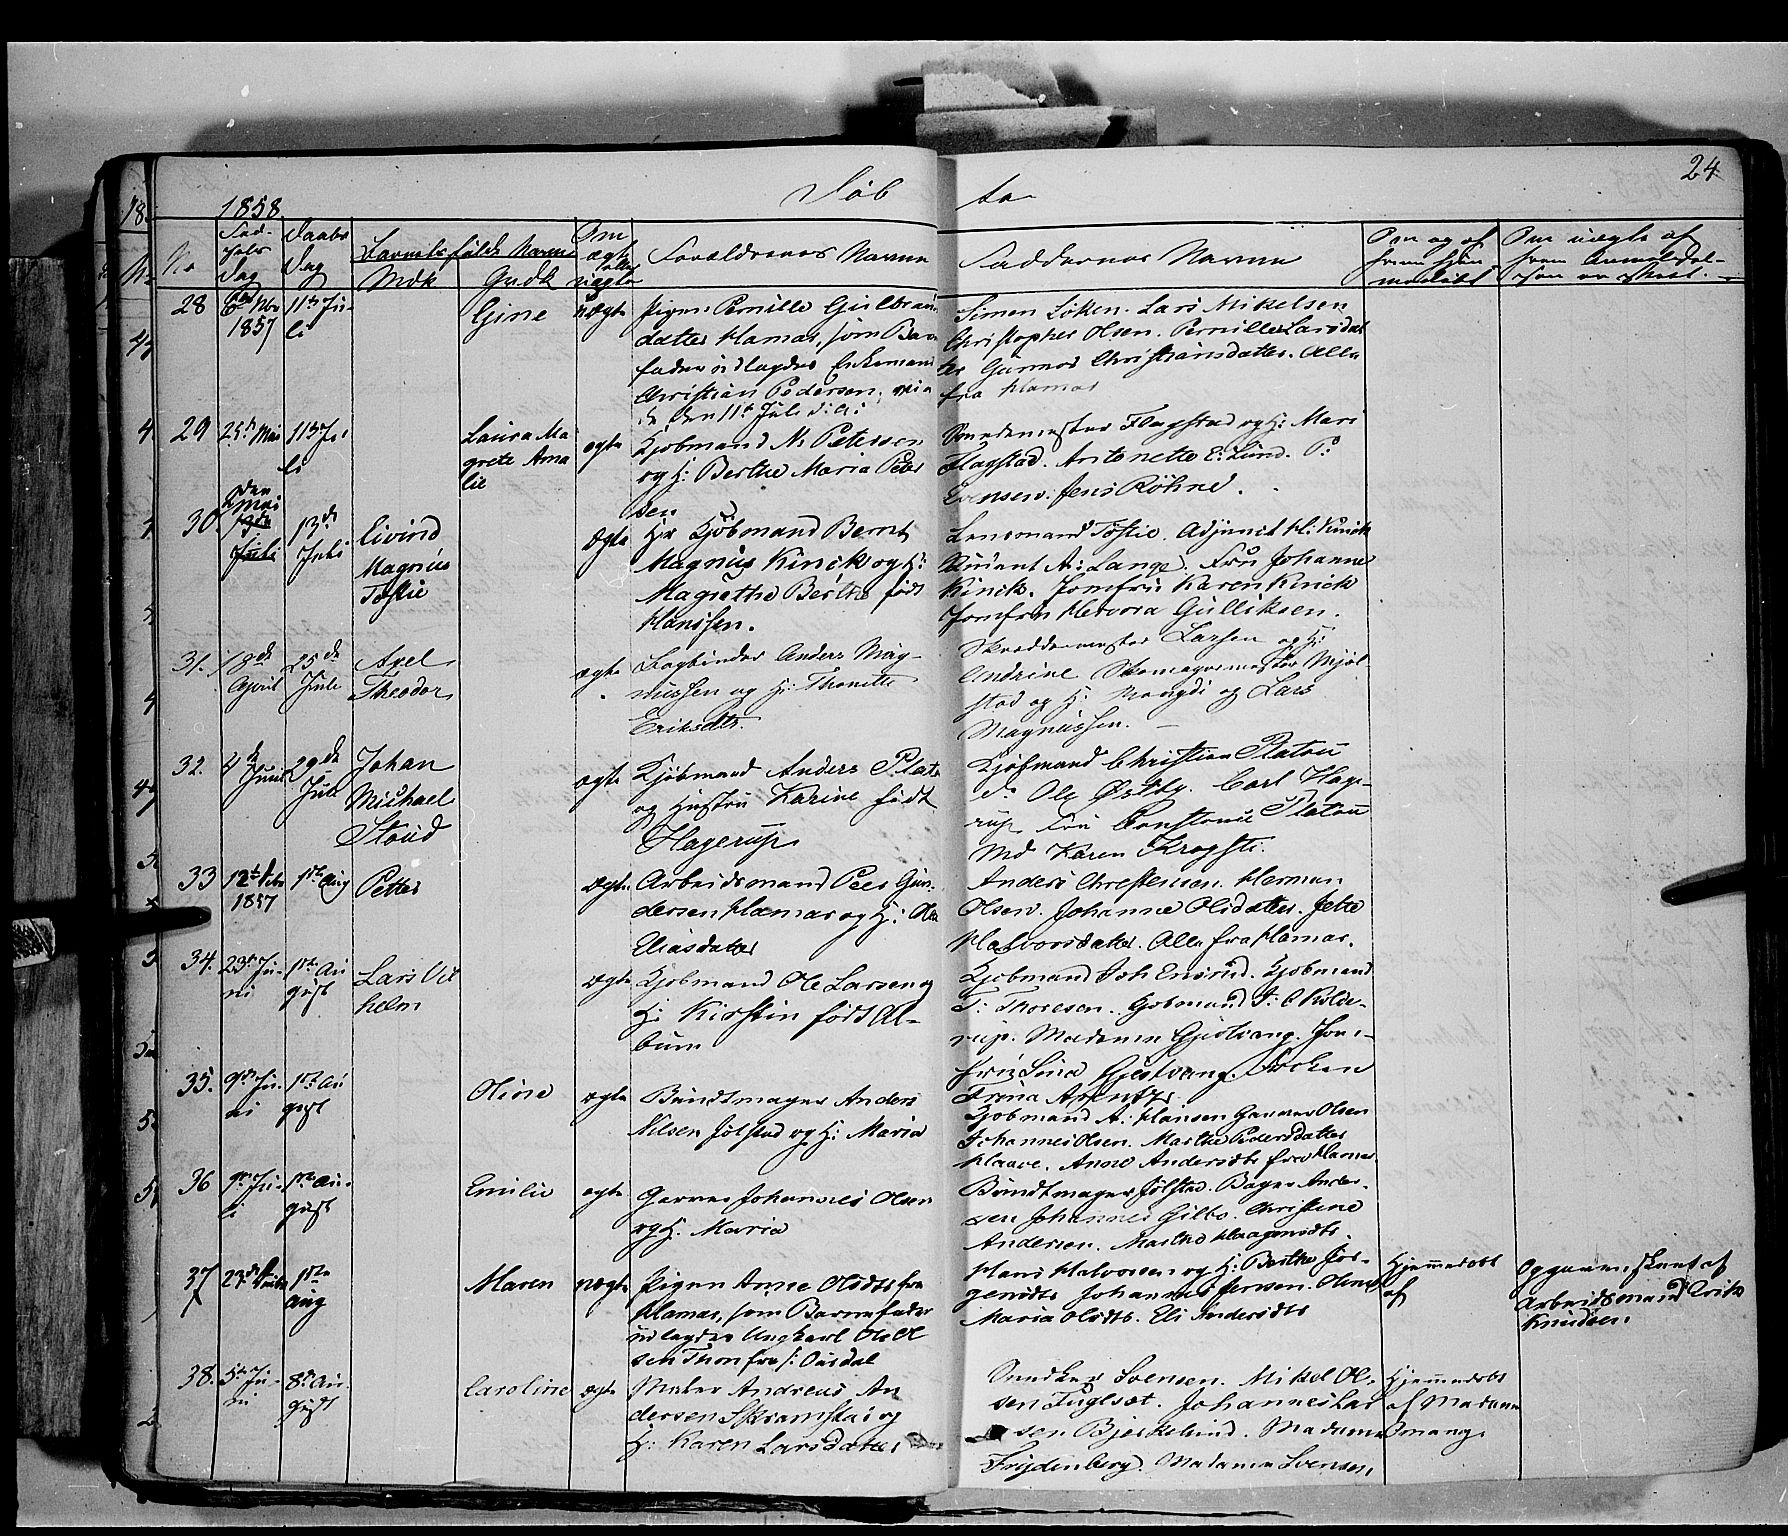 24
1858
Døb te
No
Fød-
sels
Dag
Daabs
Dag
Barnets fulde Navn
Mdk
Qvdk
Om
ægte
eller
uægte
Forældrenes Navne
Faddernes Navne
Om og af
hvem hjem
medøbt
Om uægte af
hvem Anmeldel-
sen er skeet.
28
1857
11te Ju-
li
Gine
uægte
Pigen Pernille Gulbrans
datter Hamar, som Barne
fader udlagdes Enkemand
Christian Pedersen,
den 11te Juli d. A:
Simen Løken. Lars Mikelsen
Christopher Olsen. Pernille Larsdat
ter Gunnor Christiansdatter. Alle
fra Hamar
29
25de Mai
11te Ju
li
Laura Ma
grete Ama
lie
ægte
Kjøbmand N. Petersen
og H: Berthe Maria Peter
sen
Flagstad og H: Mari
Flagstad. Antonette E: Lund. P:
Evensen. Jens Røhne.
30.
Mai
Juli
13de
Juli
Eivind
Magnus
Tostie
Ægte
Hr Kjøbmand Bernt
Magnus Kinck og H:
Magrethe Berthe født
Hanssen.
Lensmand Tostie. Adjunct H. Kinck
Student A: Lange. Fru Johanne
Kinck. Jomfru Karen Kinck
Jomfru Helvora Gulliksen.
31.
18de
April
25de
Juli
Axel
Theodor
ægte
Bogbinder Anders Mag-
nussen og H: Thonette
Eriksdtr.
Skreddermester Larsen og H:
Andrine Skomagermester Mjøl
stad og H: og Lars
Magnussen. —
32.
4de
Juni
29de
Juli
Johan
Michael
Stoud
ægte
Kjøbmand Anders Plato
og Hustru Karine født
Hagerup
Kjøbmand Christian Platou
do Ole Østby. Carl Hage-
rup Fru Constance Platou
Md Karen Krogstie.
33
1857
1ste Aug
Petter
Ægte
Arbeidsmand Peer Gun-
dersen Hamar og H: Olea
Eliasdatter
Anders Christensen. Herman
Olsen. Johanne Olsdatter. Jette
Halvorsdatter. Alle fra Hamar.
34.
23de Ju-
ni
1ste Au
gust
Lars Vil
helm
Ægte
Kjøbmand Ole Larsen og
H: Kirstin født Al-
bum
Kjøbmand Joh Ensrud. Kjøbmand
T: Thoresen. Kjøbmand J. C Polde-
rup. Madame Gjestvang. Jom-
fru Lina Gjestvang. Frøken
Trina Arentz.
35.
9de Ju-
ni
1ste Au
gust
Oline
ægte
Bundtmager Anders
Nilsen Jølstad og H: Maria
Kjøbmand A: Hansen Garver Olsen
Johannes Olsen. Marthe Pedersdatter
Anne Andersdtr fra Hamar.
36
9de Ju-
li
1ste Au-
gust
Emilie
ægte
Garver Johannes Olsen
og H. Maria
Bundtmager Jølstad. Bager Ander-
sen Johannes Gilbo. Christine
Andersen. Marthe Haagensdtr.
37
1ste
Aug
Maren
uægte
Pigen Anne Olsdtr fra
Hamar, som Barnefader
udlagdes Ungkarl Ole Ol
sen Thon fra
Hans Halvorsen og H: Berthe Jør-
gensdtr Johannes Jensen. Oline
Maria Olsdtr. Eli Andersdtr
Hjemmedøbt
af
Opgaven skeet af
Arbeidsmand Erik
Knudsen.
38.
5te Ju-
ni
8de Au-
gust
Caroline
ægte
Maler Andreas An
dersen Skramstad og
H: Karen Larsdatter
Snedker Svensen. Mikel Ol-
sen Fuglset. Johannes Lar
sen Bjerkelund. Madame
Frydenberg. Madame Svensen.
Hjemmedøbt
af Madame
Smang